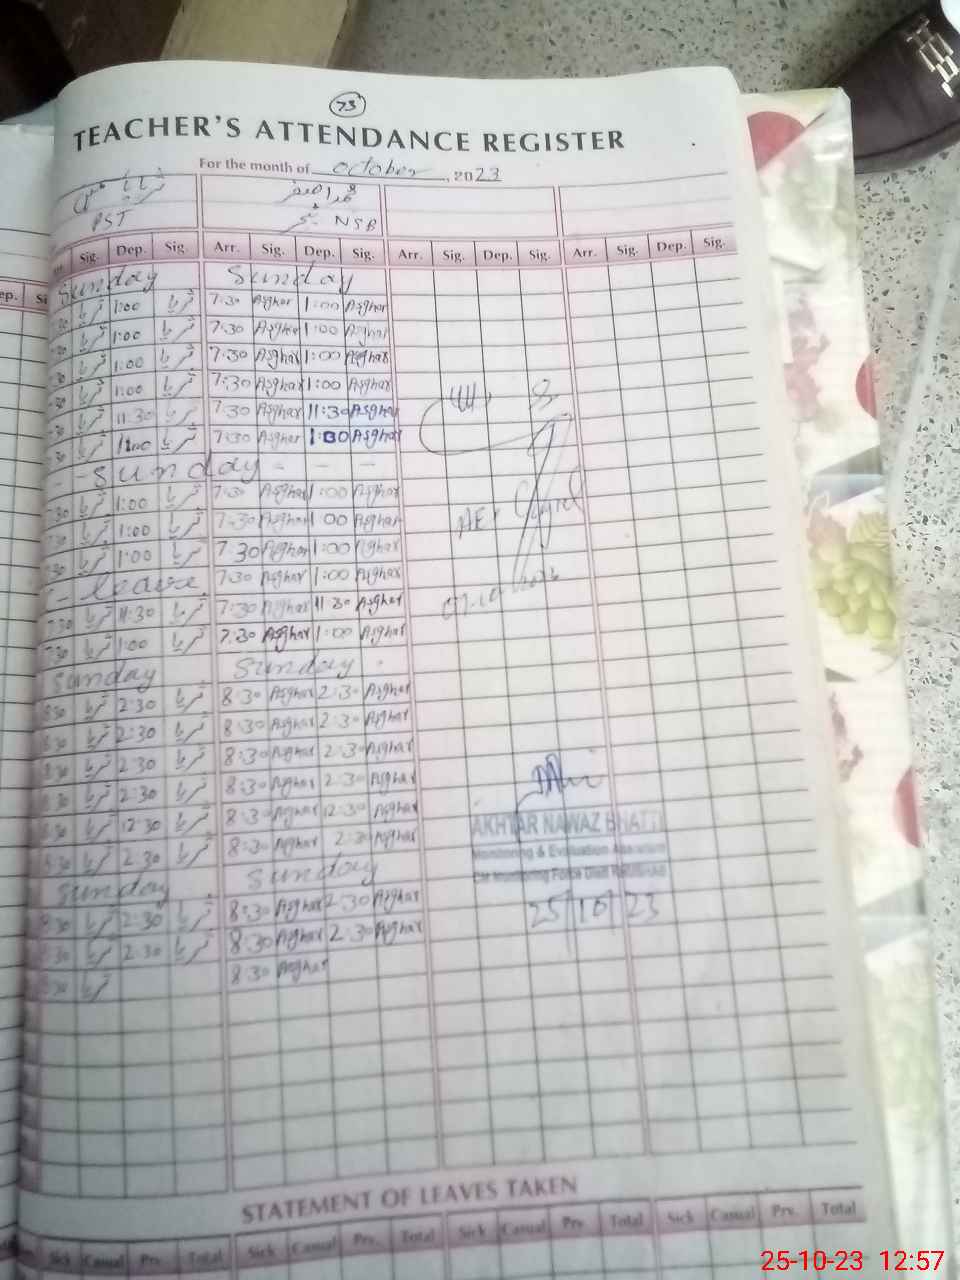 73
TEACHER'S ATTENDANCE REGISTER
For the month of October, 2023
PST NSB
Sig. Dep. Sig. Arr. Sig. Dep. Sig. Arr. Sig. Dep. Sig. Arr. Sig. Dep. Sig.
Sunday Sunday
1:00 ثریا 7:30 Asghar 1:00 Asghar
ثریا 1:00 ثریا 7:30 Asghar 1:00 Asghar
ثریا 1:00 ثریا 7:30 Asghar 1:00 Asghar
ثریا 1:00 ثریا 7:30 Asghar 1:00 Asghar
ثریا 11:30 ثریا 7:30 Asghar 11:30 Asghar
ثریا 1:00 ثریا 7:30 Asghar 1:00 Asghar
- - Sunday - - -
ثریا 1:00 ثریا 7:30 Asghar 1:00 Asghar
ثریا 1:00 ثریا 7:30 Asghar 1:00 Asghar
ثریا 1:00 ثریا 7:30 Asghar 1:00 Asghar
- leave 7:30 Asghar 1:00 Asghar
7:30 ثریا 11:30 ثریا 7:30 Asghar 11:30 Asghar
7:30 ثریا 1:00 ثریا 7:30 Asghar 1:00 Asghar
Sunday Sunday
8:30 ثریا 2:30 ثریا 8:30 Asghar 2:30 Asghar
8:30 ثریا 2:30 ثریا 8:30 Asghar 2:30 Asghar
8:30 ثریا 2:30 ثریا 8:30 Asghar 2:30 Asghar
8:30 ثریا 2:30 ثریا 8:30 Asghar 2:30 Asghar
8:30 ثریا 12:30 ثریا 8:30 Asghar 12:30 Asghar
8:30 ثریا 2:30 ثریا 8:30 Asghar 2:30 Asghar
Sunday Sunday
8:30 ثریا 2:30 ثریا 8:30 Asghar 2:30 Asghar
8:30 ثریا 2:30 ثریا 8:30 Asghar 2:30 Asghar
8:30 ثریا 8:30 Asghar
AKHTAR NAWAZ BHATTI
Monitoring & Evaluation Assistant
CM Monitoring Force Distt
25/10/23
STATEMENT OF LEAVES TAKEN
Sick Casual Prv. Total Sick Casual Prv. Total Sick Casual Prv. Total Sick Casual Prv. Total
25-10-23 12:57